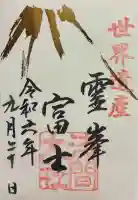 世界遺産
霊峯
富士
令和六年
九月二十日